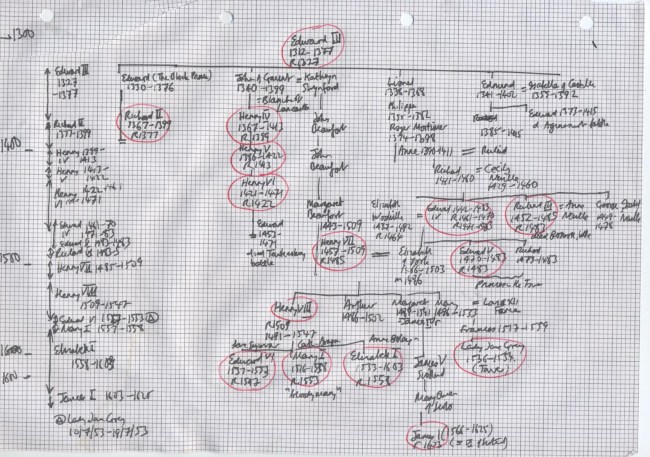 1300
Edward III
1312-1377
R1327
Edward III
1327
-1377
Edward (The Black Prince)
1330-1376
John of Gaunt = Kathryn
1340-1399 Swynford
= Blanche of
Lancaster
Lionel
1338-1368
Philippa
1355-1382
Roger Mortimer
1374-1398
Anne 1390-1411 = Richard
Edmund = Isabella of Castile
1341-1402 1355-1392
Edward 1373-1415
d Agincourt battle
1385-1415
Richard II
1367-1399
R1377
Richard II
1377-1399
Henry IV
1367-1413
R1399
John
Beaufort
1400
Henry 1399-
IV 1413
Henry V
1386-1422
R1413
Henry 1413-
V 1422
John
Beaufort
Henry 1422-1461
VI 1471
Henry VI
1421-1471
R1422
Richard = Cecily
1411-1460 Neville
Edward
1453-
1471
died Tewkesbury
battle
Margaret
Beaufort
1443-1509
Elizabeth
Woodville =
1437-1492
R1464
Edward 1442-1483
IV R1461-1470
R1471-1483
Richard III = Anne
1452-1485 Neville
R1483
George
1449-
1478
Edward 1461-70
IV 1471-83
Edward V 1483-1483
Richard III 1483-5
Henry VII 1485-1509
1500
Henry VII
1457-1509
R1485
= Elizabeth
of York
1466-1503
m 1486
Edward V
1470-1483
R1483
Richard
1473-1483
Princes in the Tower
Henry VIII
1509-1547
Henry VIII
R1509
1491-1547
Arthur
1486-1502
Margaret
1489-1541
James IV
Mary = Louis XII
France
Frances 1517-1559
Edward VI 1547-1553 A
Mary I 1553-1558
Jane Seymour
Anne Boleyn
Elizabeth I
1558-1603
Edward VI
1537-1553
R1547
Mary I
1516-1558
R1553
"bloody mary"
Elizabeth I
1533-1603
R1558
James V
Scotland
Lady Jane Grey
1536-1554
(Tower)
1600
Mary Queen
of Scots
James I 1603-1625
A Lady Jane Grey
10/7/53-19/7/53
James I (1566-1625)
R1603